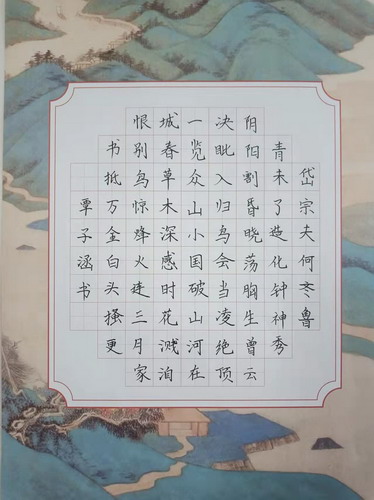 岱宗夫何齐鲁
青未了造化钟神秀
阴阳割昏晓荡胸生曾云
决眦入归鸟会当凌绝顶
一览众山小国破山河在
城春草木深感时花溅泪
恨别鸟惊烽火连三月家
书抵万金白头搔更
覃子涵书